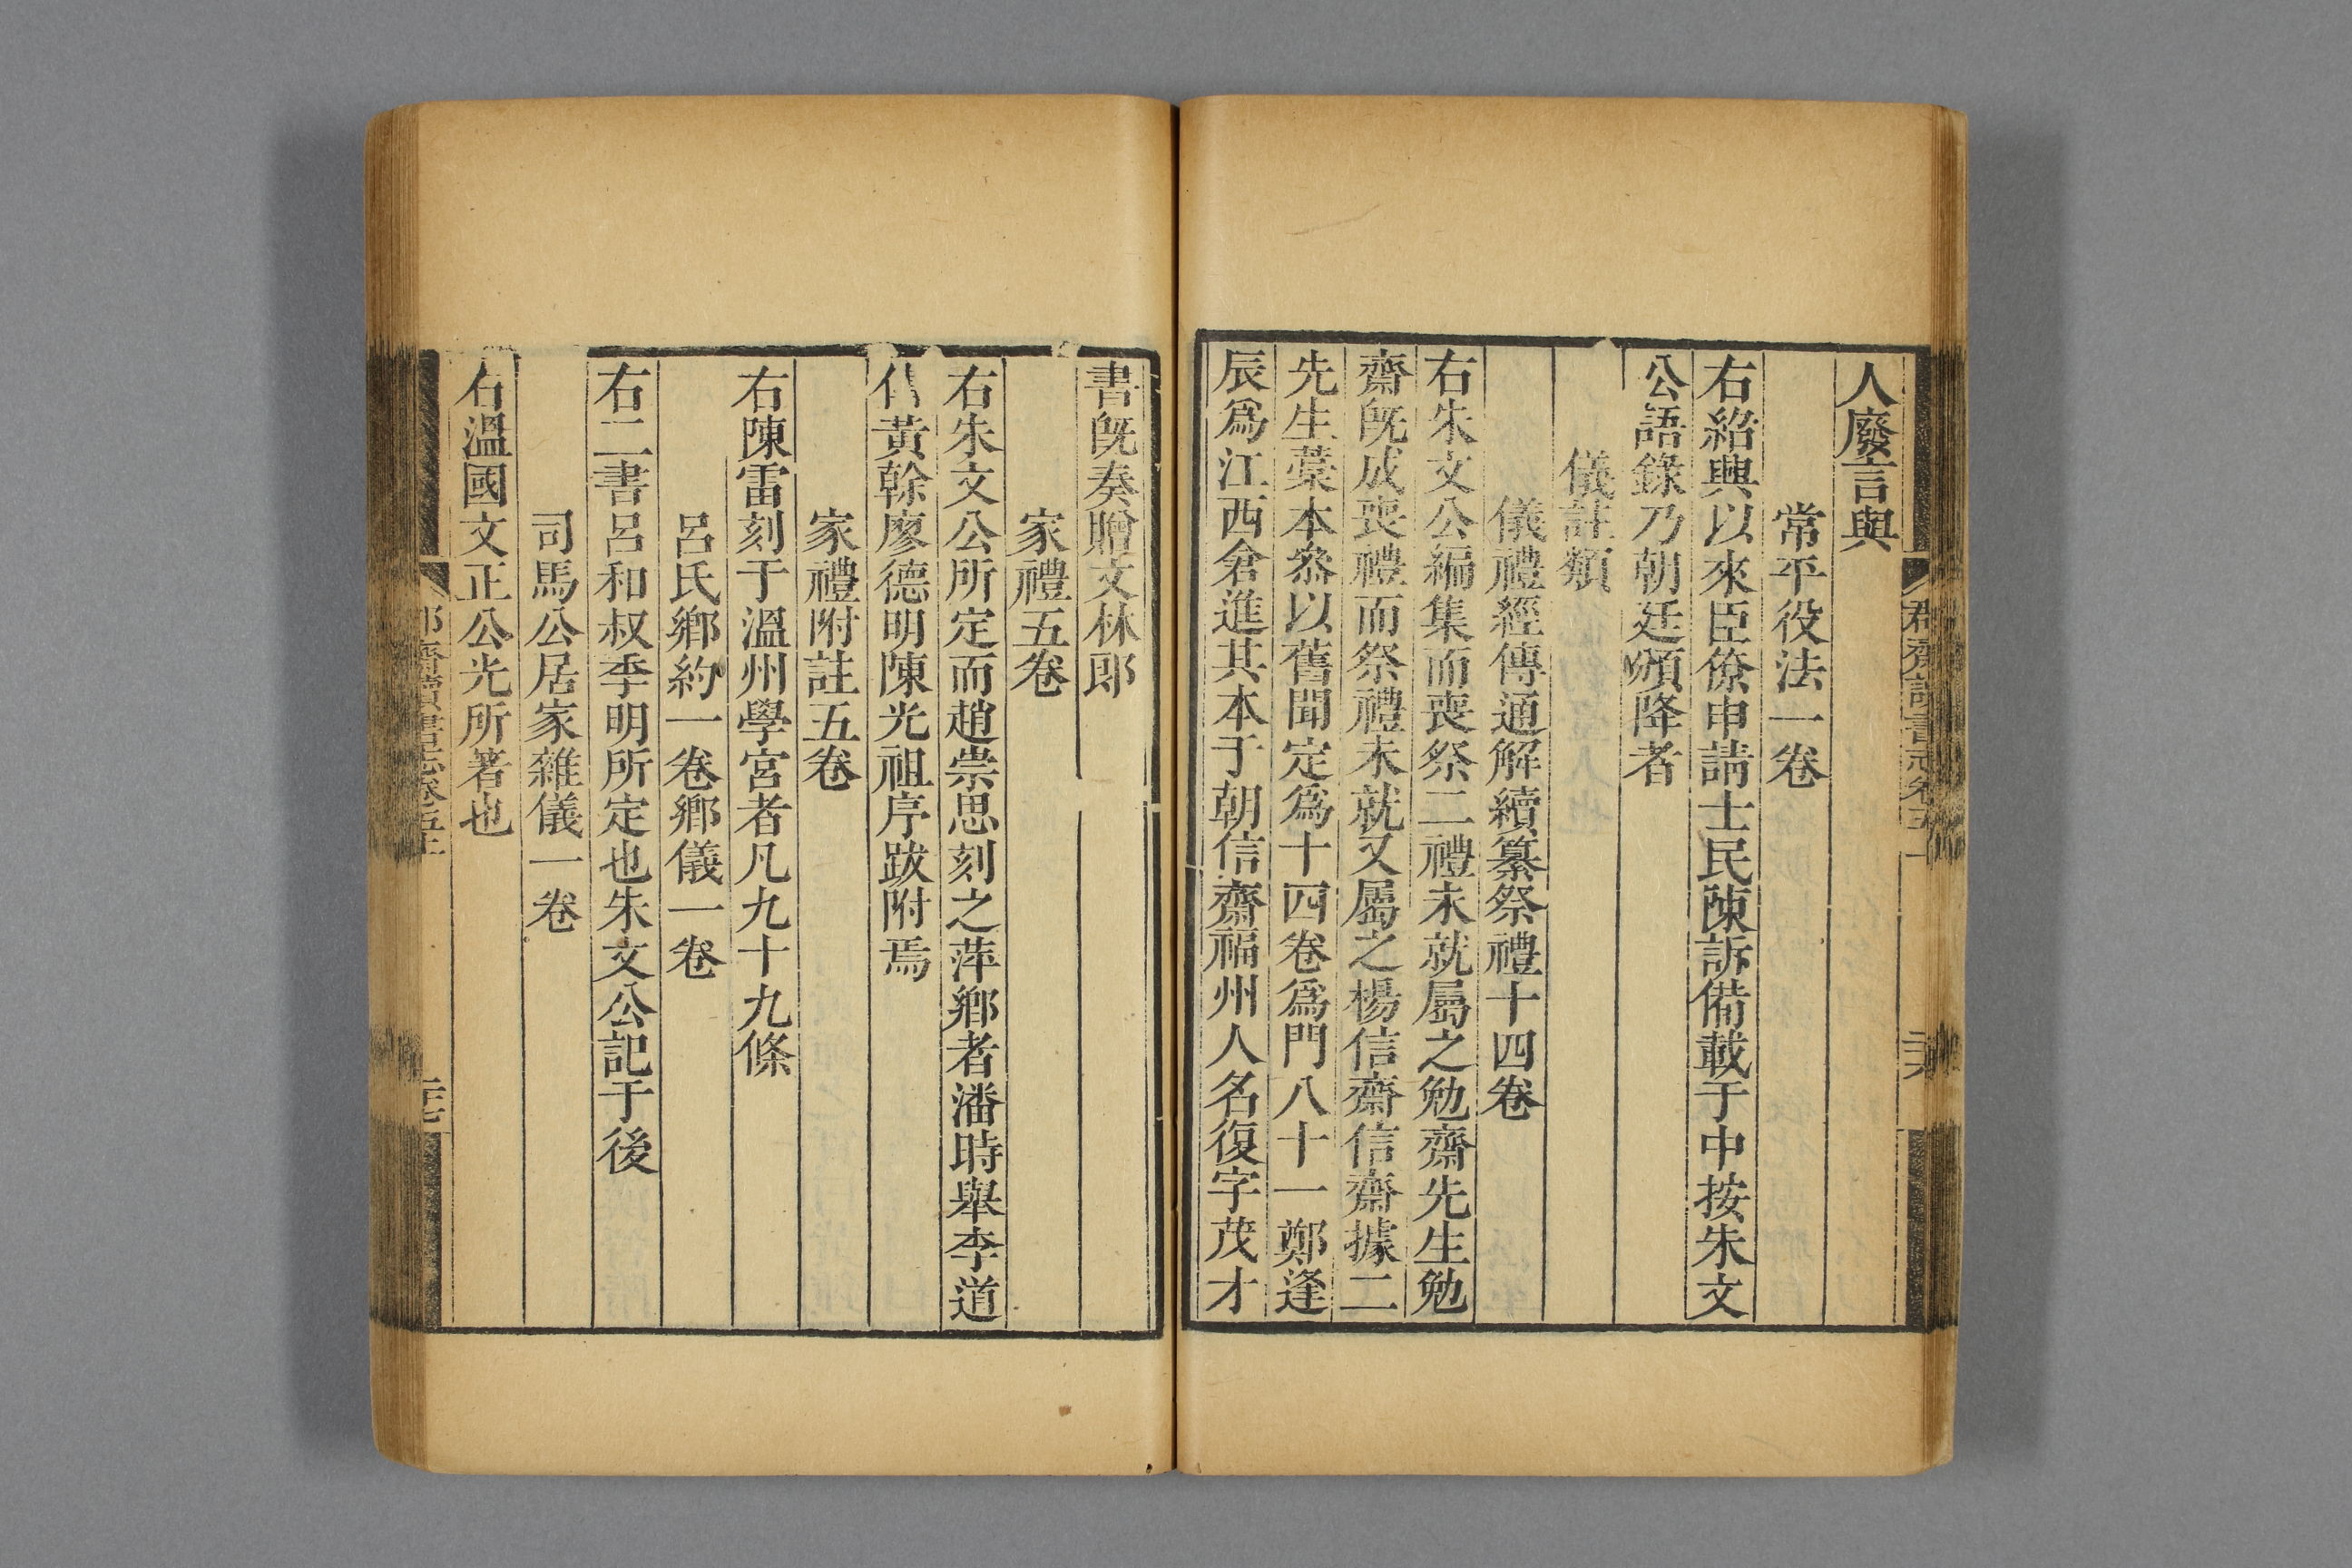 人廢言與
常平役法一卷
右紹興以來臣僚申請士民陳訴備載于中按朱文
公語錄乃朝廷頒降者
儀註類
儀禮經傳通解續纂祭禮十四卷
右朱文公編集而喪祭二禮未就屬之勉齋先生勉
齋旣成喪禮而祭禮未就又屬之楊信齋信齋據二
先生藁本叅以舊聞定爲十四卷爲門八十一鄭逢
辰爲江西倉進其本于朝信齋福州人名復字茂才
書旣奏贈文林郎
家禮五卷
右朱文公所定而趙崇思刻之萍鄉者潘時舉李道
傳黃榦廖德明陳光祖序跋附焉
家禮附註五卷
右陳雷刻于溫州學宮者凡九十九條
呂氏鄉約一卷鄉儀一卷
右二書呂和叔季明所定也朱文公記于後
司馬公居家雜儀一卷
右溫國文正公光所著也